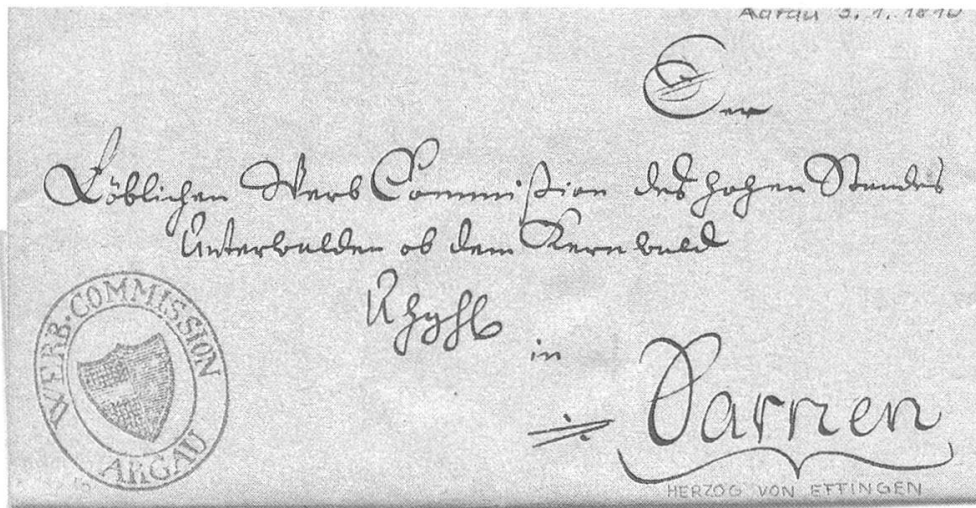 Aarau 3. 1. 1810
Der
Löblichen Werb Commißion des hohen Standes
Unterwalden ob dem Kernwald
in
Sarnen
WERB·COMMISSION
ARGAU
HERZOG VON EFFINGEN